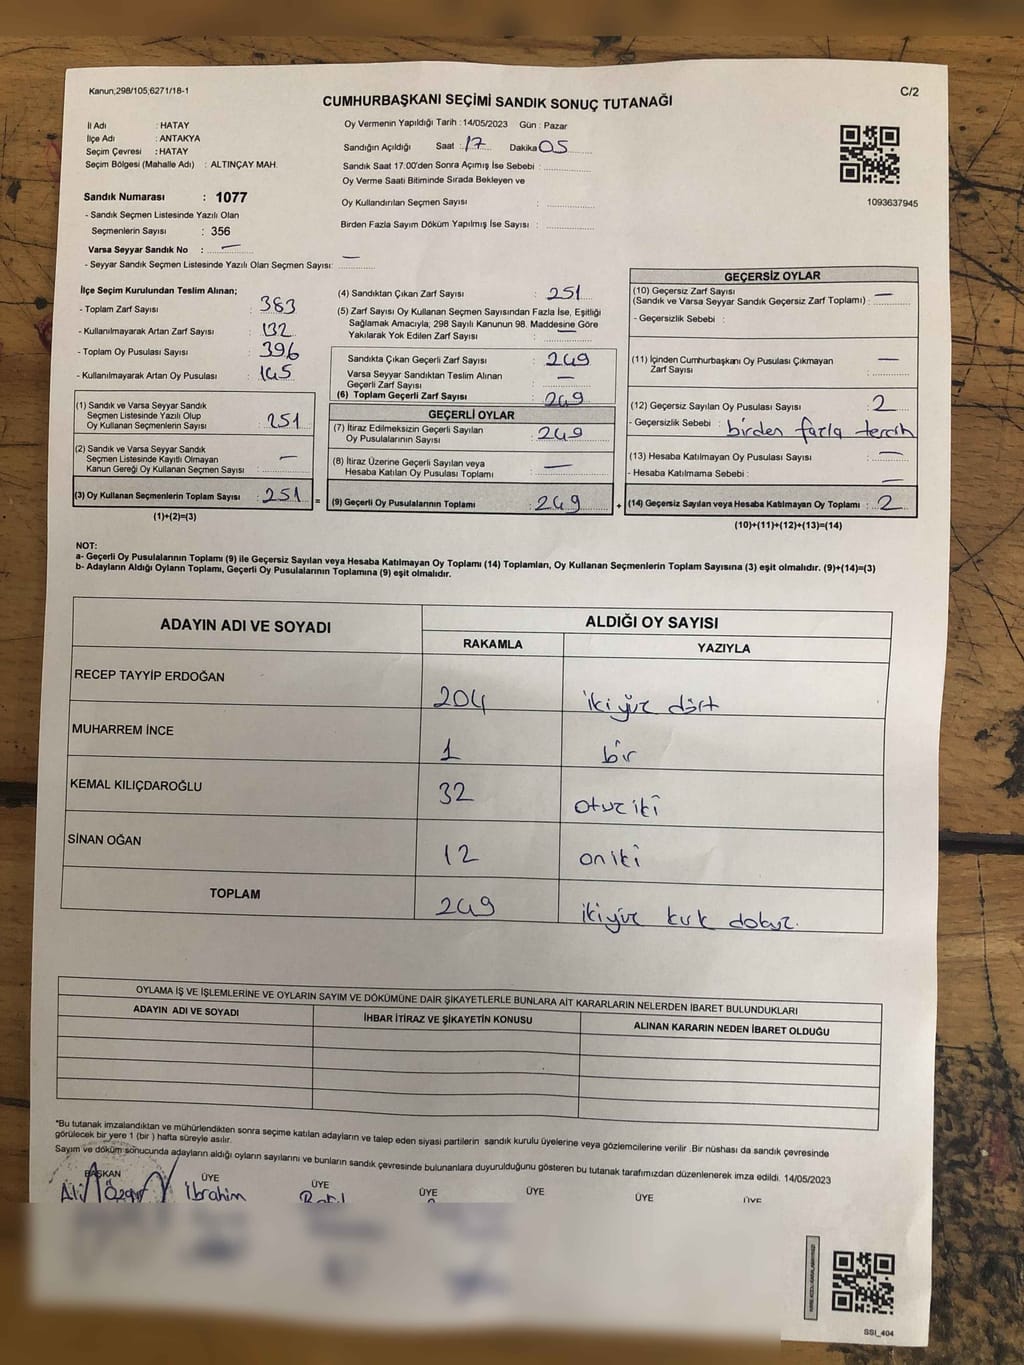 Kanun,298/105,6271/18-1
C/2
CUMHURBAŞKANI SEÇİMİ SANDIK SONUÇ TUTANAĞI
İl Adı : HATAY
İlçe Adı : ANTAKYA
Seçim Çevresi : HATAY
Seçim Bölgesi (Mahalle Adı) : ALTINÇAY MAH.
Oy Vermenin Yapıldığı Tarih : 14/05/2023 Gün : Pazar
Sandığın Açıldığı Saat : 17 Dakika 05
Sandık Saat 17:00'den Sonra Açımış İse Sebebi :
Oy Verme Saati Bitiminde Sırada Bekleyen ve
Oy Kullandırılan Seçmen Sayısı :
Birden Fazla Sayım Döküm Yapılmış İse Sayısı :
1093637945
Sandık Numarası : 1077
- Sandık Seçmen Listesinde Yazılı Olan
Seçmenlerin Sayısı : 356
Varsa Seyyar Sandık No : —
- Seyyar Sandık Seçmen Listesinde Yazılı Olan Seçmen Sayısı: —
İlçe Seçim Kurulundan Teslim Alınan;
- Toplam Zarf Sayısı : 383
- Kullanılmayarak Artan Zarf Sayısı : 132
- Toplam Oy Pusulası Sayısı : 396
- Kullanılmayarak Artan Oy Pusulası : 145
(1) Sandık ve Varsa Seyyar Sandık
Seçmen Listesinde Yazılı Olup
Oy Kullanan Seçmenlerin Sayısı : 251
(2) Sandık ve Varsa Seyyar Sandık
Seçmen Listesinde Kayıtlı Olmayan
Kanun Gereği Oy Kullanan Seçmen Sayısı : —
(3) Oy Kullanan Seçmenlerin Toplam Sayısı : 251 =
(1)+(2)=(3)
(4) Sandıktan Çıkan Zarf Sayısı : 251
(5) Zarf Sayısı Oy Kullanan Seçmen Sayısından Fazla İse, Eşitliği
Sağlamak Amacıyla; 298 Sayılı Kanunun 98. Maddesine Göre
Yakılarak Yok Edilen Zarf Sayısı : —
Sandıkta Çıkan Geçerli Zarf Sayısı : 249
Varsa Seyyar Sandıktan Teslim Alınan
Geçerli Zarf Sayısı : —
(6) Toplam Geçerli Zarf Sayısı : 249
GEÇERLİ OYLAR
(7) İtiraz Edilmeksizin Geçerli Sayılan
Oy Pusulalarının Sayısı : 249
(8) İtiraz Üzerine Geçerli Sayılan veya
Hesaba Katılan Oy Pusulaları Toplamı : —
(9) Geçerli Oy Pusulalarının Toplamı : 249 +
GEÇERSİZ OYLAR
(10) Geçersiz Zarf Sayısı
(Sandık ve Varsa Seyyar Sandık Geçersiz Zarf Toplamı) : —
- Geçersizlik Sebebi :
(11) İçinden Cumhurbaşkanı Oy Pusulası Çıkmayan
Zarf Sayısı : —
(12) Geçersiz Sayılan Oy Pusulası Sayısı : 2
- Geçersizlik Sebebi : birden fazla tercih
(13) Hesaba Katılmayan Oy Pusulası Sayısı : —
- Hesaba Katılmama Sebebi : —
(14) Geçersiz Sayılan veya Hesaba Katılmayan Oy Toplamı : 2
(10)+(11)+(12)+(13)=(14)
NOT:
a- Geçerli Oy Pusulalarının Toplamı (9) ile Geçersiz Sayılan veya Hesaba Katılmayan Oy Toplamı (14) Toplamları, Oy Kullanan Seçmenlerin Toplam Sayısına (3) eşit olmalıdır. (9)+(14)=(3)
b- Adayların Aldığı Oyların Toplamı, Geçerli Oy Pusulalarının Toplamına (9) eşit olmalıdır.
ADAYIN ADI VE SOYADI
ALDIĞI OY SAYISI
RAKAMLA YAZIYLA
RECEP TAYYİP ERDOĞAN 204 ikiyüz dört
MUHARREM İNCE 1 bir
KEMAL KILIÇDAROĞLU 32 otuz iki
SİNAN OĞAN 12 oniki
TOPLAM 249 ikiyüz kırk dokuz.
OYLAMA İŞ VE İŞLEMLERİNE VE OYLARIN SAYIM VE DÖKÜMÜNE DAİR ŞİKAYETLERLE BUNLARA AİT KARARLARIN NELERDEN İBARET BULUNDUKLARI
ADAYIN ADI VE SOYADI İHBAR İTİRAZ VE ŞİKAYETİN KONUSU ALINAN KARARIN NEDEN İBARET OLDUĞU
*Bu tutanak imzalandıktan ve mühürlendikten sonra seçime katılan adayların ve talep eden siyasi partilerin sandık kurulu üyelerine veya gözlemcilerine verilir .Bir nüshası da sandık çevresinde
görülecek bir yere 1 (bir ) hafta süreyle asılır.
Sayım ve döküm sonucunda adayların aldığı oyların sayılarını ve bunların sandık çevresinde bulunanlara duyurulduğunu gösteren bu tutanak tarafımızdan düzenlenerek imza edildi. 14/05/2023
BAŞKAN ÜYE ÜYE ÜYE ÜYE ÜYE ÜYE
Ali Özgür İbrahim
SSI_404